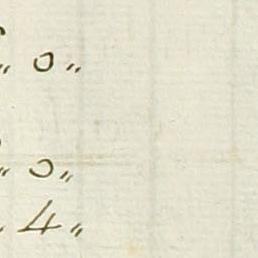 „ 0 „
„ 0 „
„ 4 „